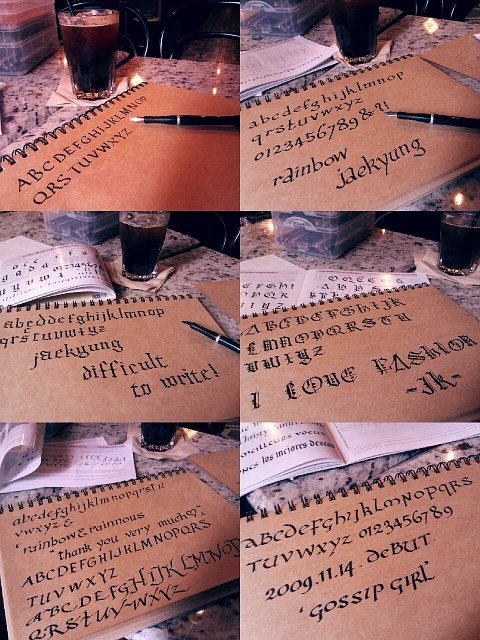 ABCDEFGHIJKLMNOP
QRSTUVWXYZ
abcdefghijklmnop
qrstuvwxyz
0123456789 & ?!
rainbow
jaekyung
abcddefghijklmnop
qrstuvwxyz
jaekyung
difficult
to write!
ABCDEFGHIJK
LMNOPQRSTU
VWXYZ
I LOVE FASHION
-JK-
abcdefghijklmnopqrstu
vwxyz &
"rainbow & rainnous
"thank you very much♡"
ABCDEFGHIJKLMNOPQRS
TUVWXYZ
ABCDEFGHIJKLMNOP
QRSTUVWXYZ
meilleurs voeux
los mejores deseos
ABCDEFGHIJKLMNOPQRS
TUVWXYZ 0123456789
2009.11.14. DEBUT.
"GOSSIP GIRL"